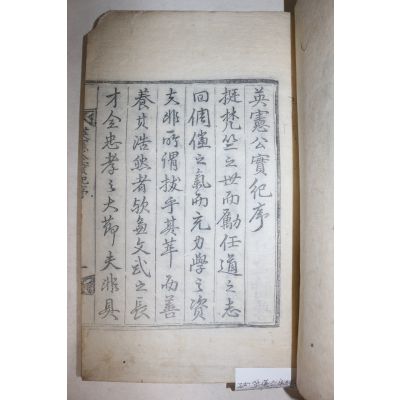 英憲公實紀序
挺梵竺之世而勵任道之志
回倜儻之氣而充力學之資
夫非所謂拔乎其萃而善
養其浩然者欤兼文武之長
才全忠孝之大節夫非具
英憲公實紀序
一